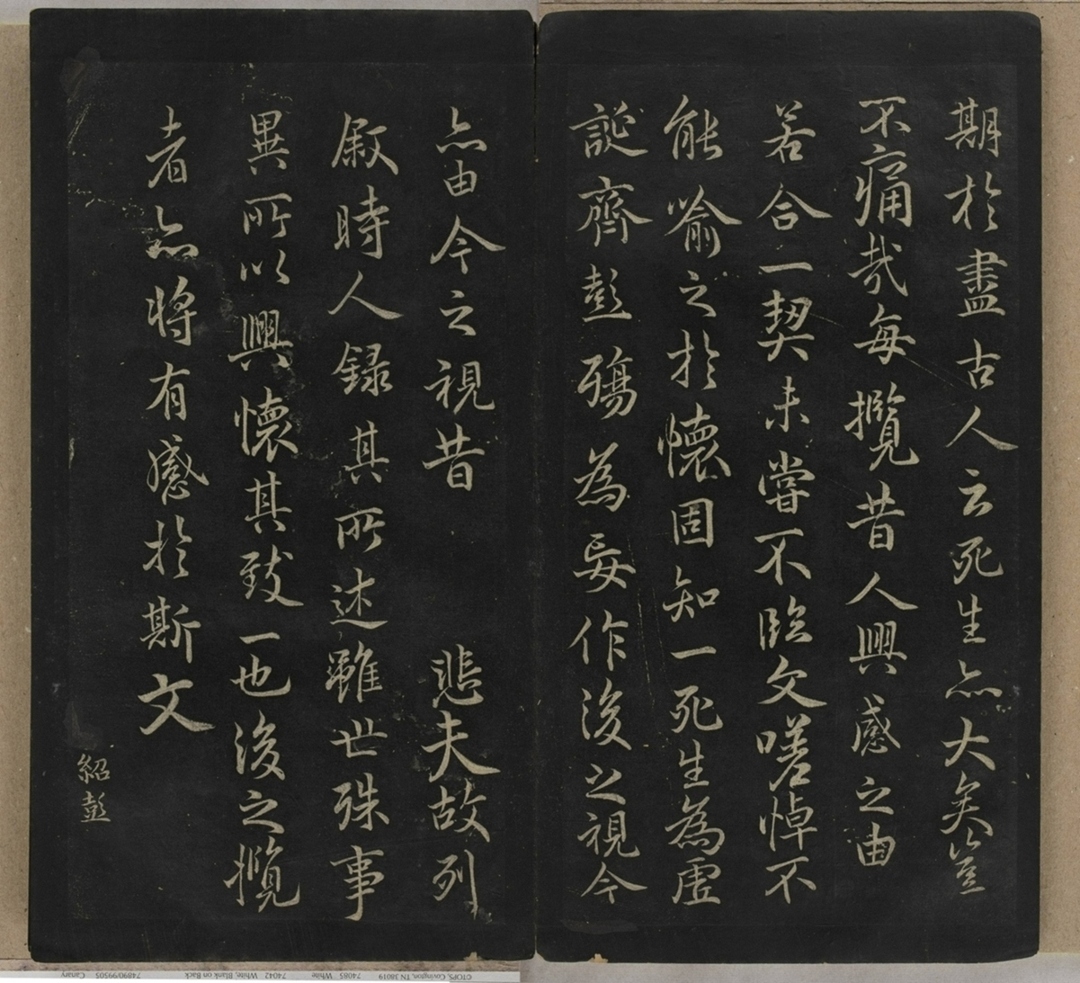 期於盡古人云死生亦大矣豈
不痛哉每攬昔人興感之由
若合一契未嘗不臨文嗟悼不
能喻之於懷固知一死生為虛
誕齊彭殤為妄作後之視今
亦由今之視昔 悲夫故列
叙時人録其所述雖世殊事
異所以興懷其致一也後之攬
者亦將有感於斯文
紹彭
Covington, TN 38019 74085 White 74042 White, Blank on Back 74890/99505 Canary